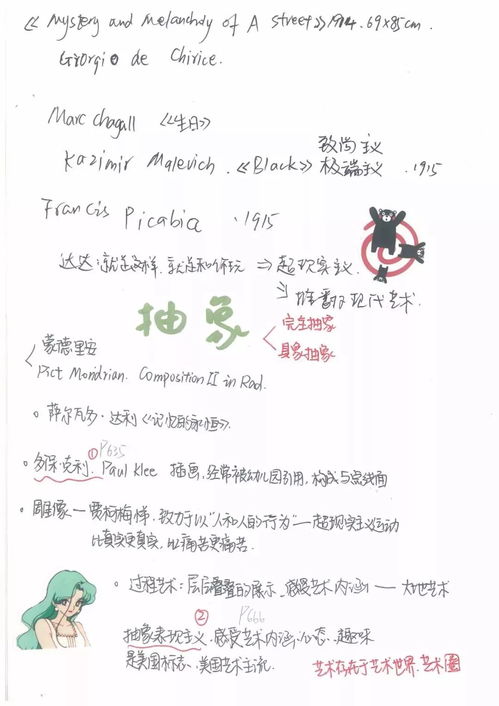 《Mystery and Melancholy of A street》1914. 69×85cm.
Giorgio de Chirice.
Marc chagall 《生日》
Kazimir Malevich. 《Black》 致尚主义 极端主义 . 1915
Francis Picabia . 1915
达达·就是这样, 就是和你玩 ⇒ 超现实主义.
⇒ 推翻现代艺术.
抽象
完全抽象
具象抽象
蒙德里安
Pict Mondrian. Composition II in Red.
萨尔瓦多·达利《记忆的永恒》.
① P635
多保·克利. Paul Klee 插画, 经常被幼儿园引用, 构成与点线面
雕像—贾柯梅悌, 致力于以"人和人的行为"—超现实主义运动
比真实更真实, 比痛苦更痛苦.
过程艺术: 层层叠叠的展示, 感受艺术内涵 —— 大地艺术
② P666
抽象表现主义, 感受艺术内涵, 心态, 趣味
是美国标志、美国艺术主流.
艺术存在于艺术世界. 艺术圈